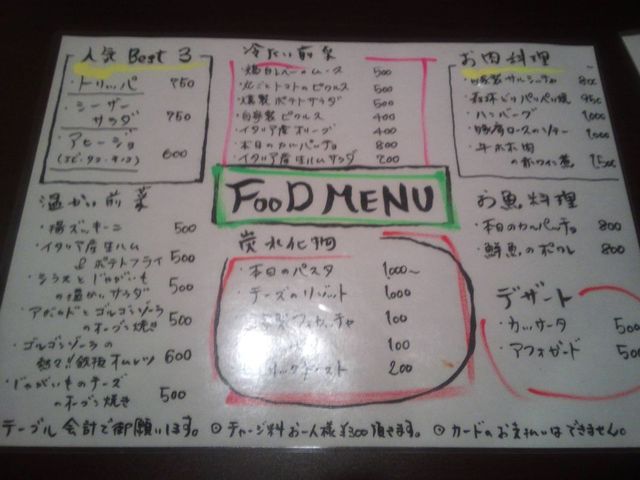 人気 Best 3
・トリッパ 750
・シーザーサラダ 750
・アヒージョ 600
冷たい前菜
・鶏白レバーのムース 500
・丸ごとトマトのピクルス 500
・燻製ポテトサラダ 500
・自家製ピクルス 400
・イタリア産オリーブ 400
・本日のカルパッチョ 800
・イタリア産生ハムサラダ 700
お肉料理
・自家製サルシッチャ 800
パリパリ焼 950
・ハンバーグ 1,000
・豚肩ロースのソテー 1,000
・牛ホホ肉
の赤ワイン煮 1,500
FOOD MENU
温かい前菜
・揚ズッキーニ 500
・イタリア産生ハム
& ポテトフライ 500
・シラスとじゃがいも
の温かいサラダ 500
・アボカドとゴルゴンゾーラ
のオーブン焼き 500
・ゴルゴンゾーラの
熱々!!鉄板オムレツ 600
・じゃがいものチーズ
のオーブン焼き 500
炭水化物
・本日のパスタ 1,000~
・チーズのリゾット 1,000
フォカッチャ 100
100
ガーリックトースト 200
お魚料理
・本日のカルパッチョ 800
・鮮魚のポワレ 800
デザート
・カッサータ 500
・アフォガード 500
テーブル会計で御願いします。 ◎チャージ料お一人様¥300頂きます。 ◎カードのお支払いはできません。